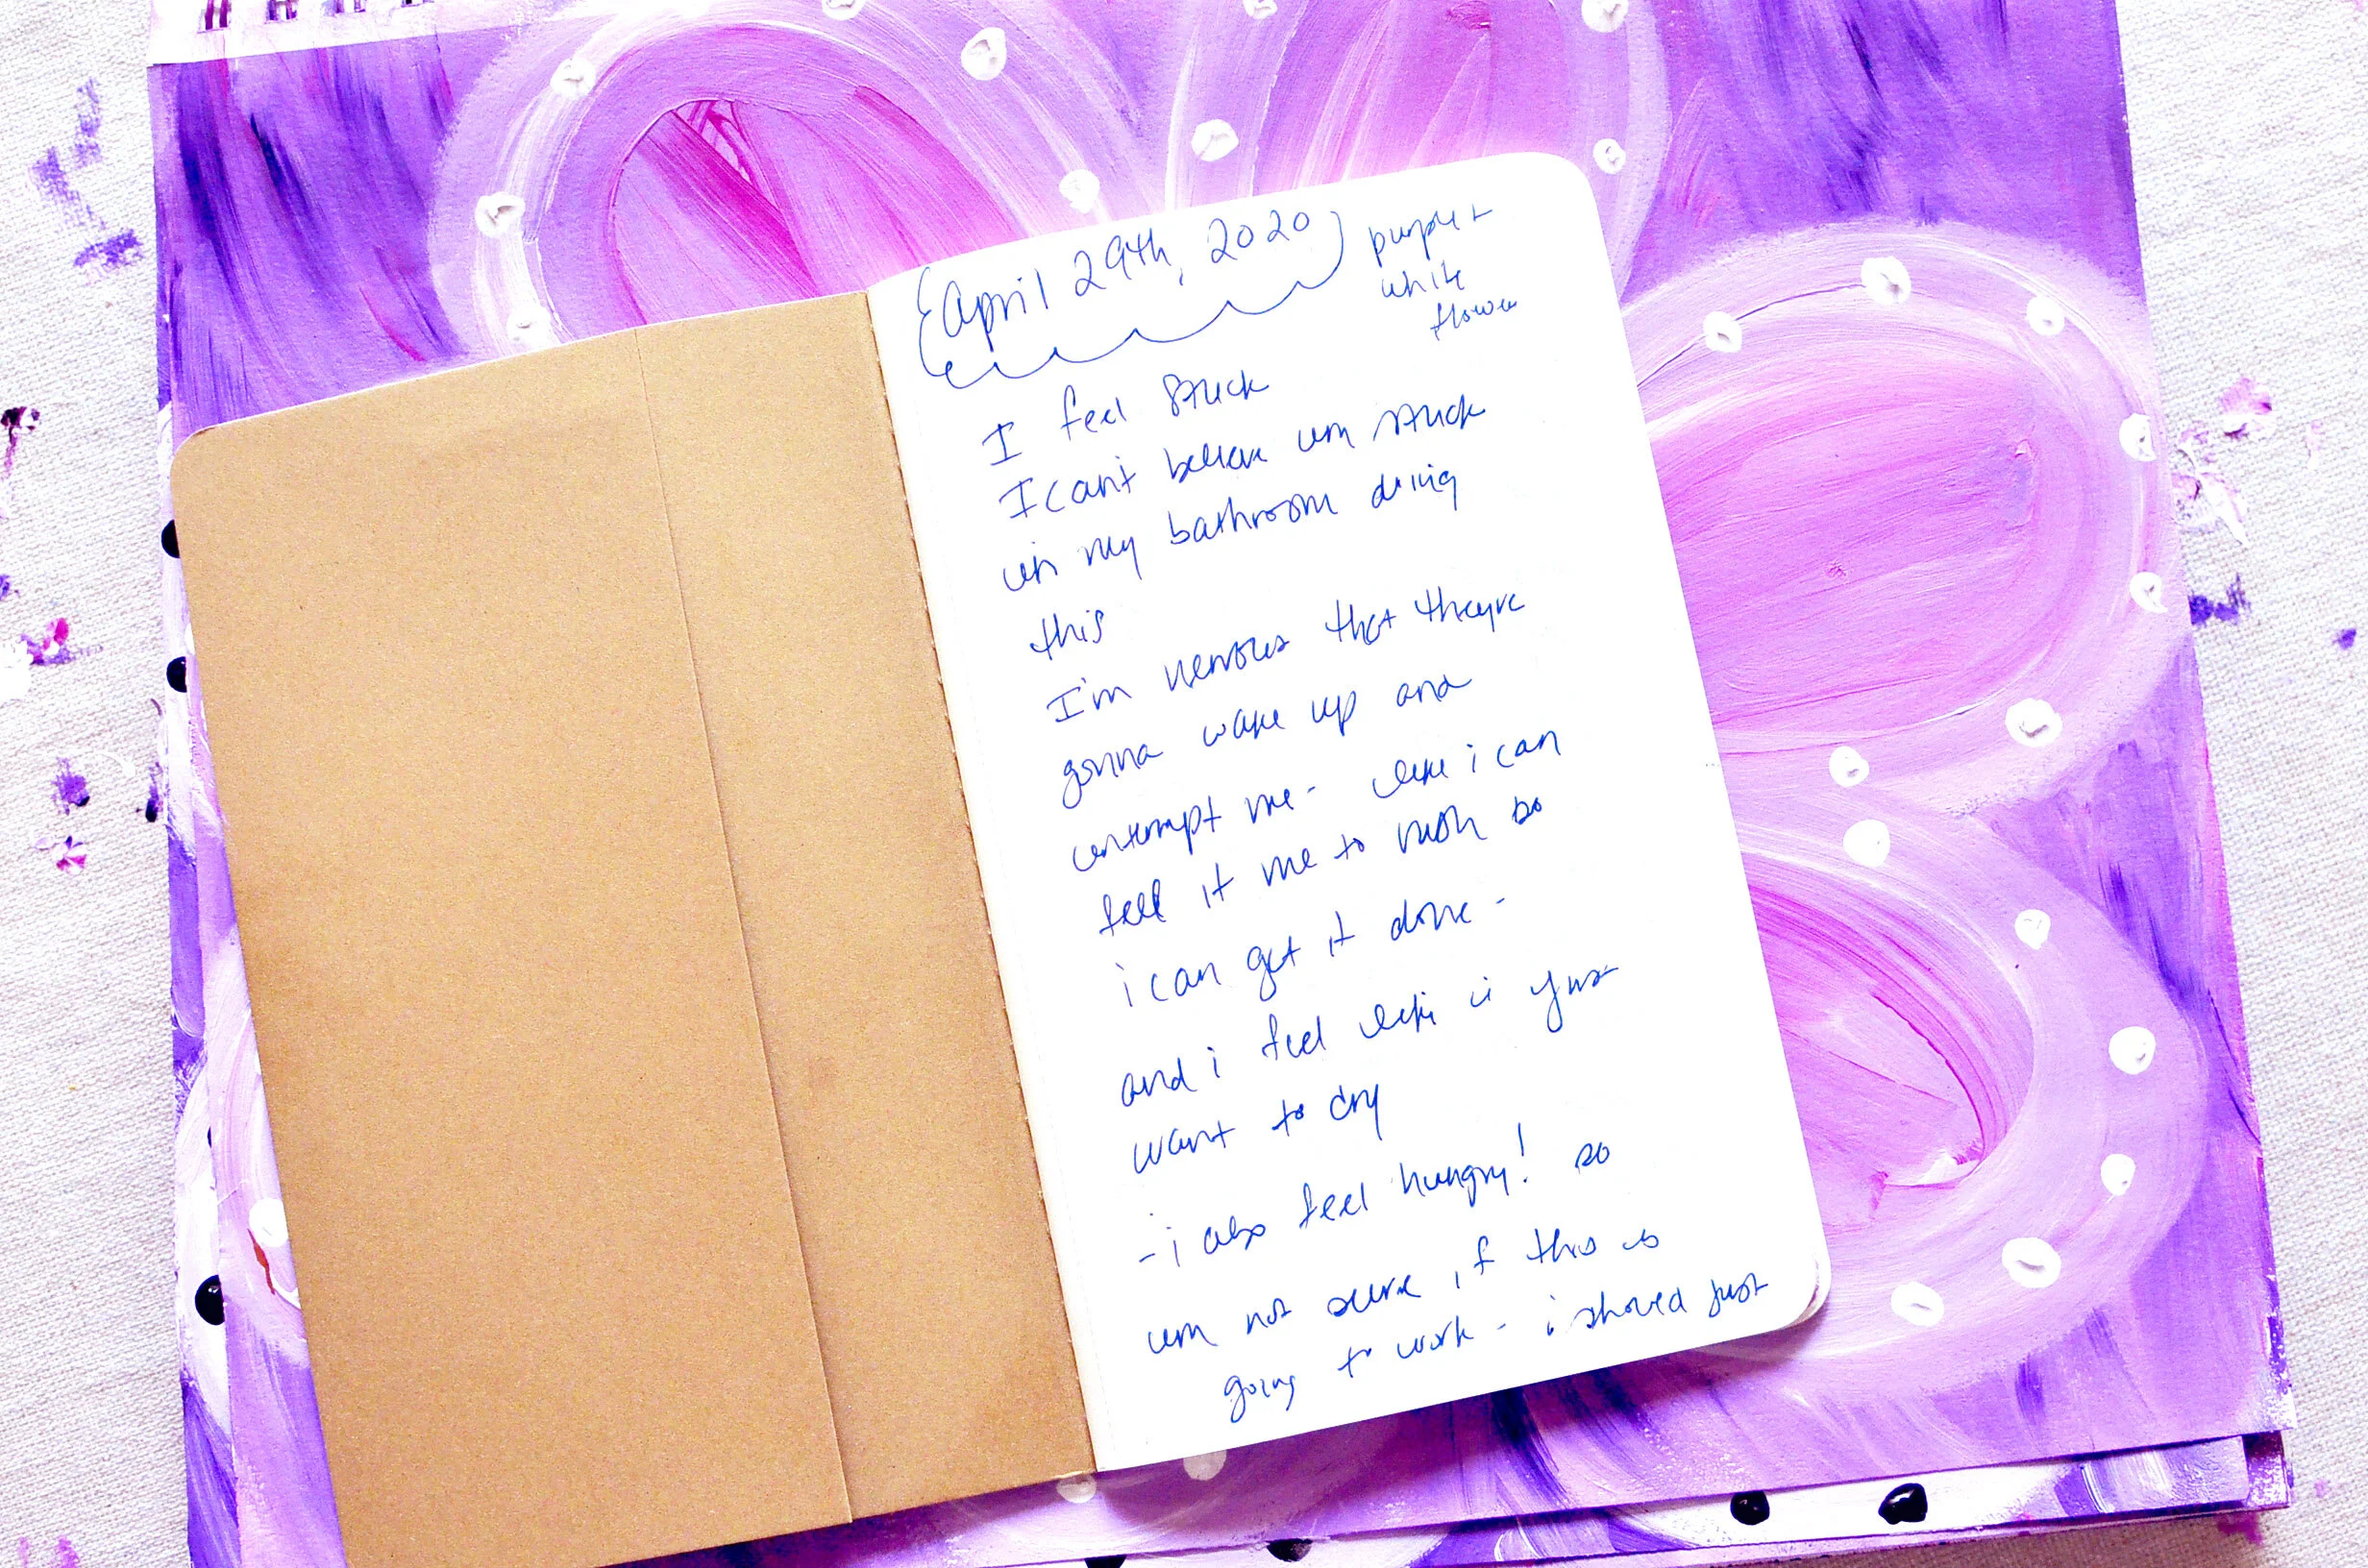 April 29th, 2020
purple +
white
flower
I feel stuck
I can't believe im stuck
in my bathroom doing
this
I'm nervous that theyre
gonna wake up and
interrupt me - like i can
feel it me to rush so
i can get it done -
and i feel like i just
want to cry
- i also feel hungry! so
im not sure if this is
going to work - i should just